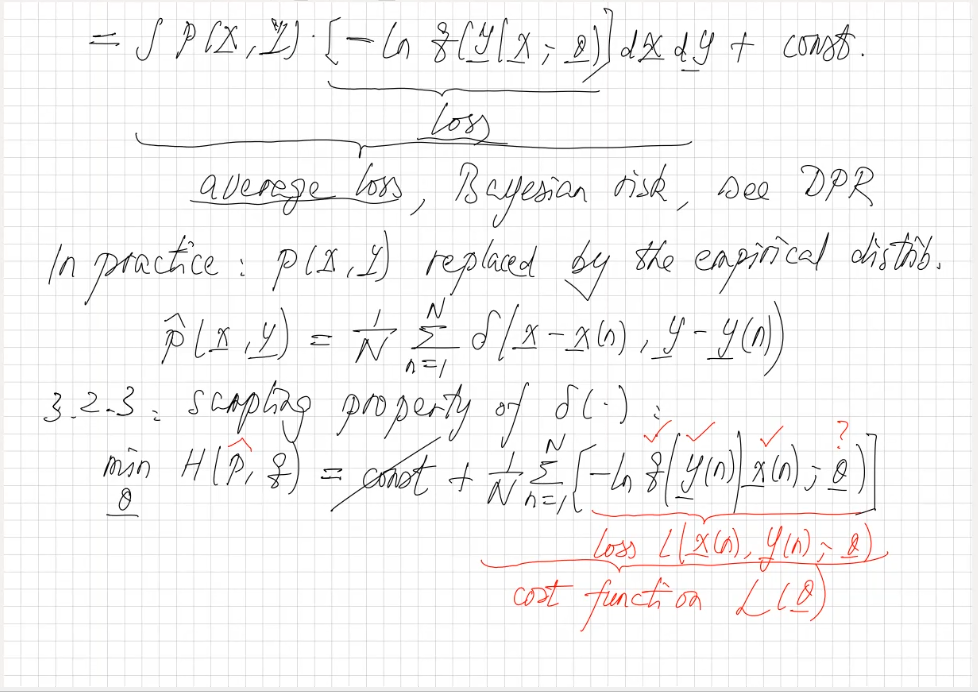 = ∫ p(x, y) · [-ln q(y|x; θ)] dx dy + const.
loss
average loss, Bayesian risk, see DPR
In practice: p(x, y) replaced by the empirical distrib.
p̂(x, y) = 1/N Σ_{n=1}^{N} δ(x - x(n), y - y(n))
3.2-3: sampling property of δ(·):
✓ ✓ ✓ ?
min_θ H(p̂, q) = const + 1/N Σ_{n=1}^{N} [-ln q(y(n)|x(n); θ)]
loss L(x(n), y(n); θ)
cost function L(θ)